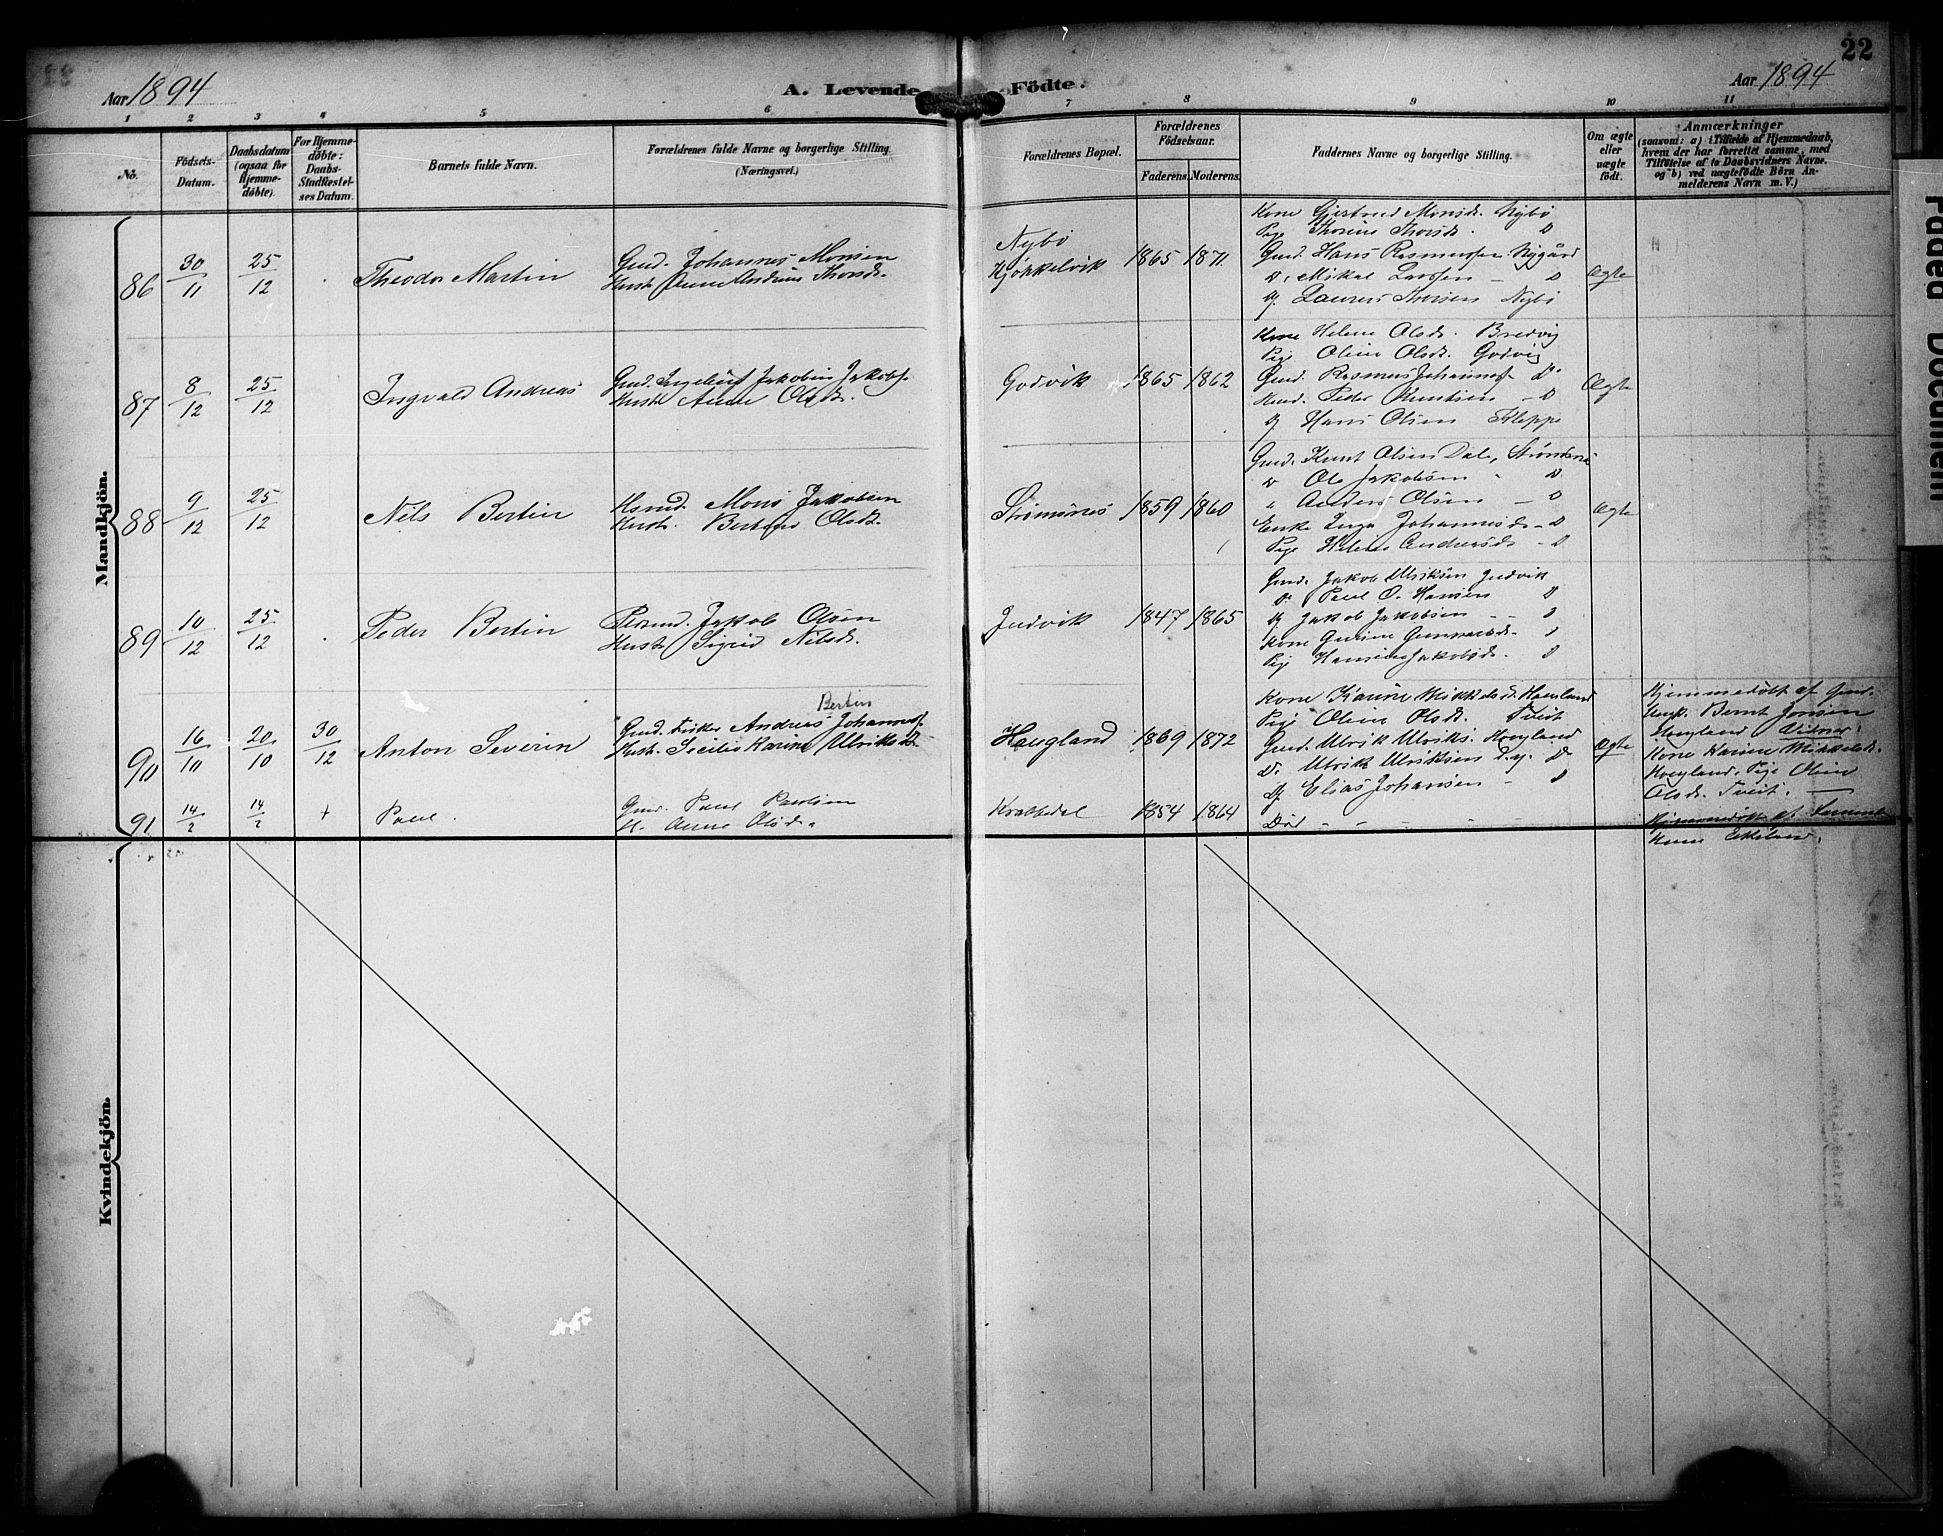 22
Aar 1894
A. Levende Födte.
Aar 1894
1 2 3 4 5 6 7 8 9 10 11
No.
Födsels-
Datum.
Daabsdatum
(ogsaa for
Hjemme-
döbte).
For Hjemme-
döbte:
Daabs-
Stadfæstel-
ses Datum.
Barnets fulde Navn.
Forældrenes fulde Navne og borgerlige Stilling.
(Næringsvei.)
Forældrenes Bopæl.
Forældrenes
Födselsaar.
Faderens. Moderens.
Faddernes Navne og borgerlige Stilling.
Om ægte
eller
uægte
födt.
Anmærkninger
(saasom: a) i Tilfælde af Hjemmedaab,
hvem der har forrettet samme, med
Tilföielse af to Daabsvidners Navne.
og b) ved uægtefödte Börn An-
melderens Navn m. V.)
Mandkjön.
86 30/11 25/12 Theodor Martin
Gmd. Johannes Monsen
Hust. Anne Andrine Thorsd.
Nybø
Kjøkkelvik 1865 1871
Kone Gjertrud Monsd. Nybø
Pige Thorine Thorsd. D
Gmd. Hans Rasmussen Nygård
D. Mikal Larssen - D
Uf. Laurus Thorsen Nybø
Ægte
87 8/12 25/12 Ingvald Andreas
Gmd. Ingebrigt Jakobin Jakobs.
Hust. Anne Olsd.
Godvik 1865 1862
Kone Helene Olsd. Bredvig
Pige Oline Olsd. Godvig
Gmd. Rasmus Johannes. D.
Hmd. Peder Knutsen - D
Uf. Hans Olsen Kleppe
Ægte
88 9/12 25/12 Nils Bertin
Hsmd. Mons Jakobsen
Hust. Olsd.
Strømsnes 1859 1860
Gmd. Knut Olsen Dale, Strømsnes
" Ole Jakobsen - D
" Anders Olsen - D
Enke Inga Johannesd. - D
Pige Helene Andersd. - D
Ægte
89 10/12 25/12 Peder Bertin
Jakob Olsen
Hust. Sigrid Nilsd.
Judvik 1847 1865
Gmd. Jakob Ulriksen Judvik
D. Paul O. Hansen D
Uf. Jakob Jakobsen - - D
Kone Gurine Gunnarsd. - D
Pige Jakobsd. D
90 16/10 20/10 30/12 Anton Severin
Bertin
Gmd. Fisker Andreas Johannes.
Hust. Karine Ulriksd.
Haugland 1869 1872
Kone Karine Mikkelsd. Haugland
Pige Oline Olsd. Tveit
Gmd. Ulrik Ulriks. Haugland
D. Ulrik Ulriksen d.y. D
Uf. Elias Johansen - D
Ægte
Hjemmedøbt af Gmd.
Ungk. Bernt Jonsen
Haugland Vidner:
Kone Karine Mikkelsd.
Haugland, Pige Oline
Olsd. Tveit.
91 14/2 14/2 + Paul.
Gmd. Paul Paulsen
H. Anne Olsd.
Krabbedal 1854 1864
Død - - - - -
Hjemmedøbt af
Kone
Kvindekjön.
Paded Document